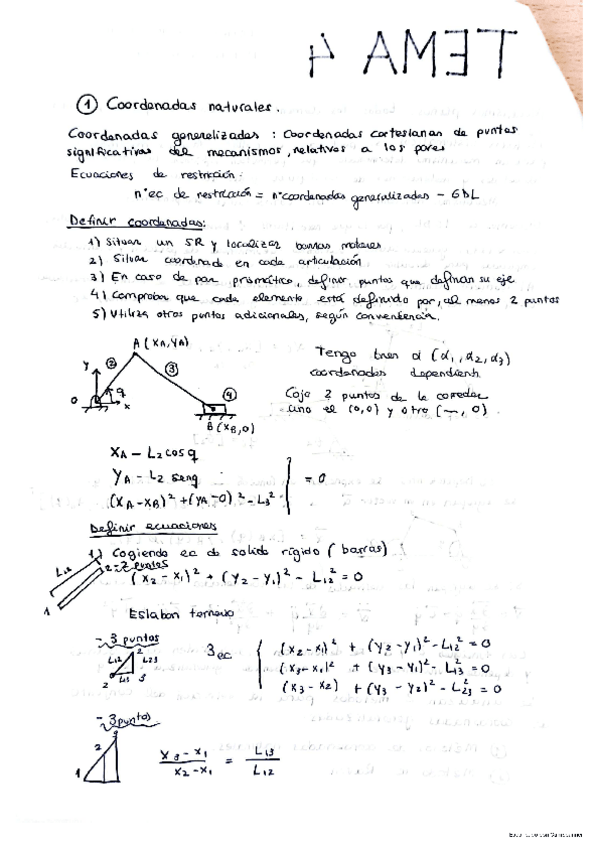 TEMA 4
① Coordenadas naturales.
Coordenadas generalizadas : Coordenadas cartesianas de puntos
significativos del mecanismos, relativos a los pares
Ecuaciones de restricción:
nº ec de restricción = nº coordenadas generalizadas - GDL
Definir coordenadas:
1) Situar un SR y localizar barras motores
2) Situar coordenada en cada articulación
3) En caso de par prismático, definir puntos que definan su eje
4) Comprobar que cada elemento está definido por, al menos 2 puntos
5) Utiliza otros puntos adicionales, según conveniencia.
A (XA, YA)
② ③ ④
y q O x
B (XB, 0)
Tengo (α1, α2, α3)
coordenadas dependient
Cojo 2 puntos de la corredera
uno el (0,0) y otro (~, 0).
XA - L2 cos q
YA - L2 sen q = 0
(XA - XB)² + (YA - 0)² - L3²
Definir ecuaciones
1) Cogiendo ec de solido rígido (barras)
- 2 puntos
L12 2
1
(x2 - x1)² + (y2 - y1)² - L12² = 0
Eslabon ternario
- 3 puntos
3 ec
(x2 - x1)² + (y2 - y1)² - L12² = 0
(x3 - x1)² + (y3 - y1)² - L13² = 0
(x3 - x2) + (y3 - y2)² - L23² = 0
L12 2 L23
2 L13 3
- 3 puntos
3
2
1
x3 - x1 / x2 - x1 = L13 / L12